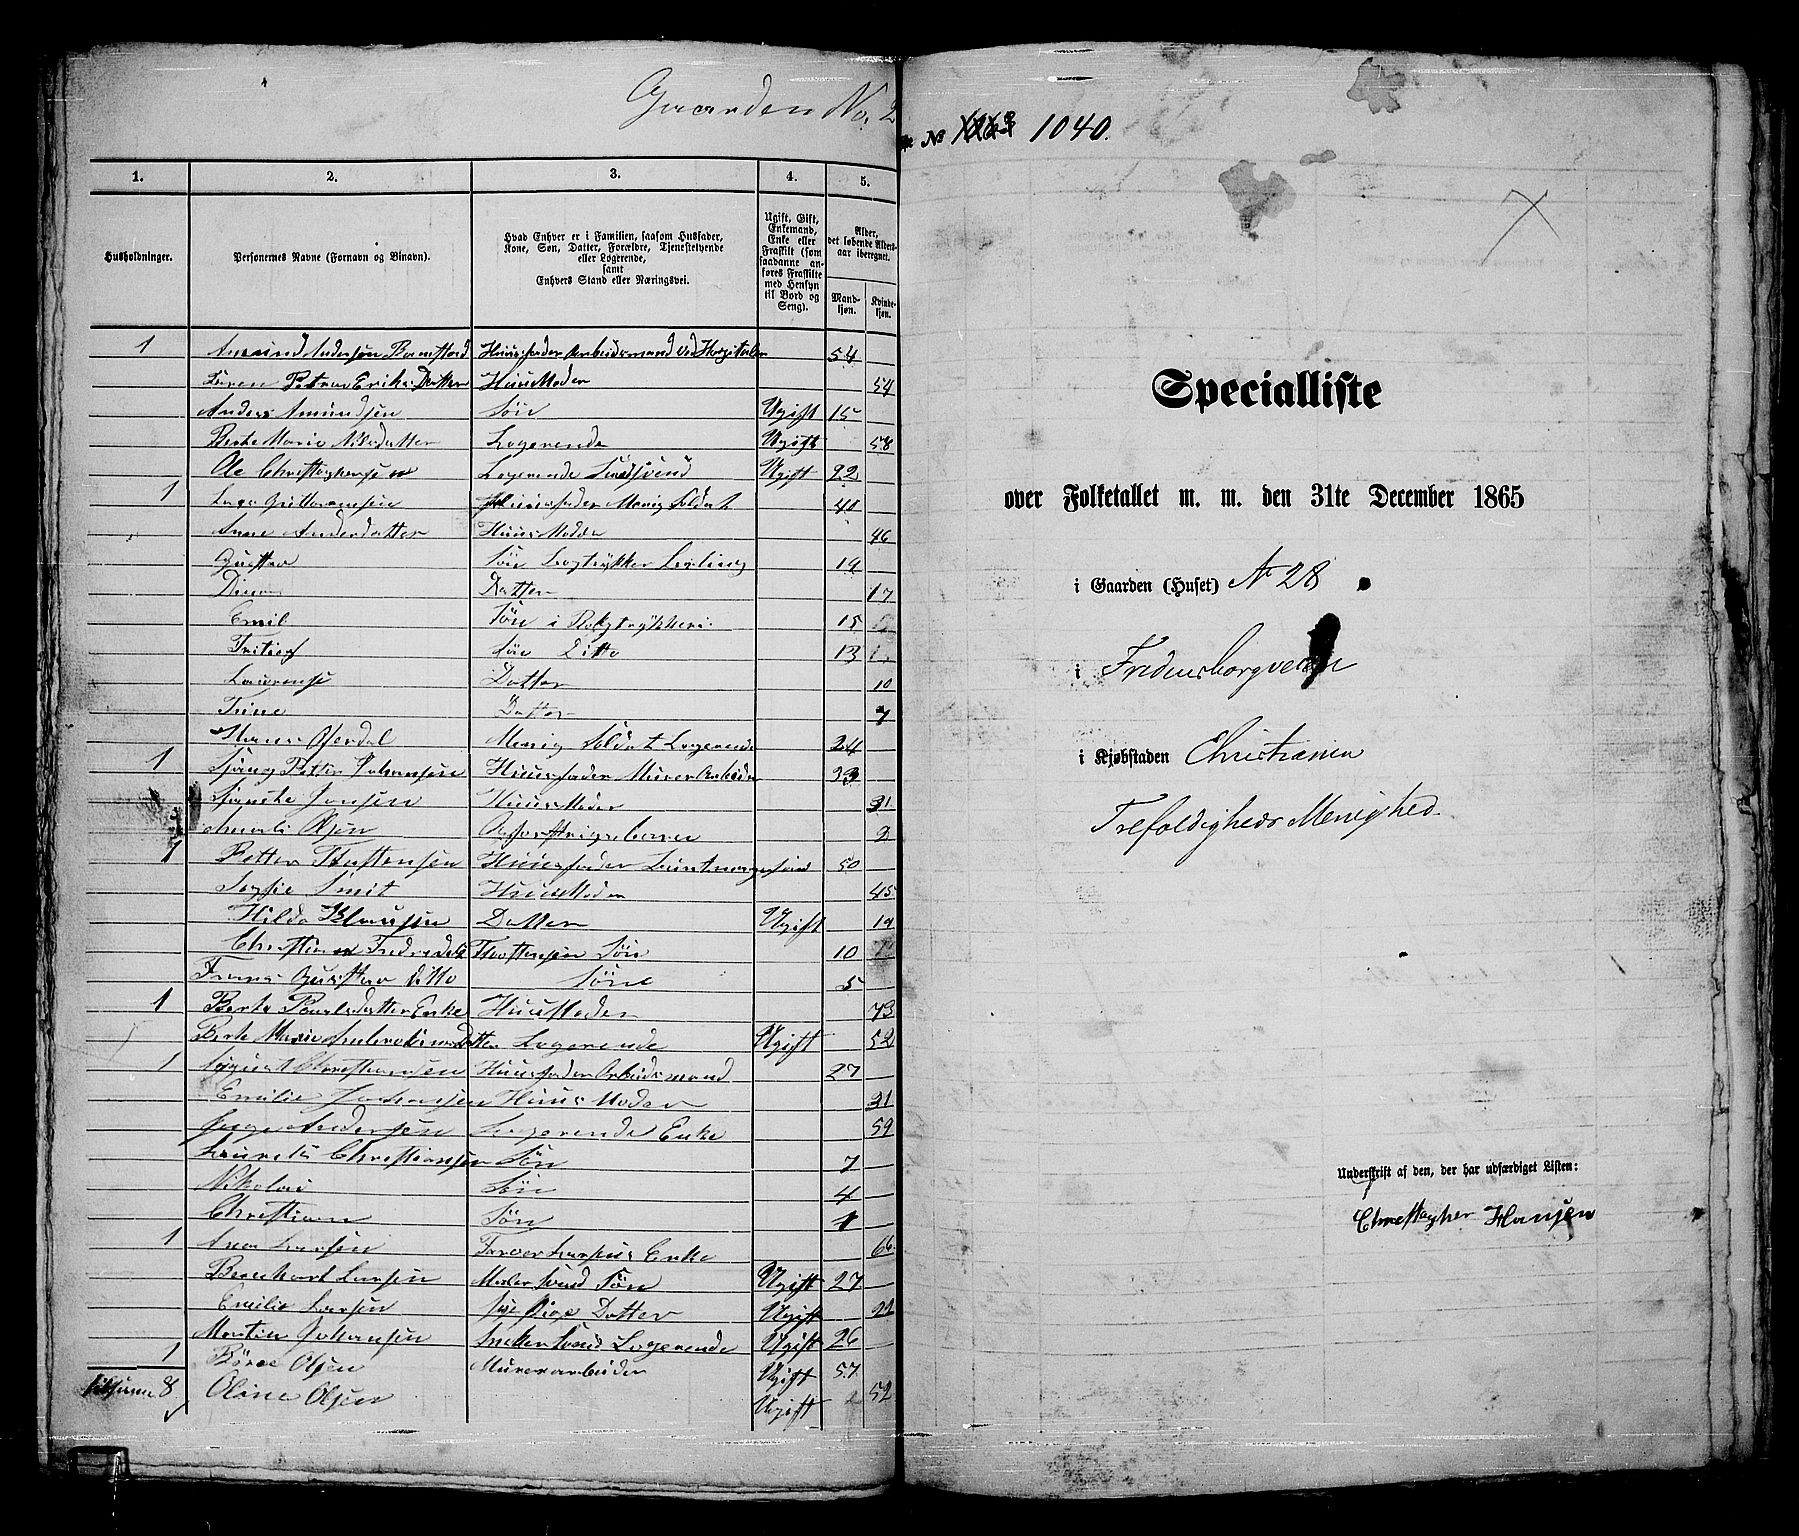 Gaarden No. 2
1. 2. 3. 4. 5.
Husholdninger.
Personernes Navne (Fornavn og Binavn).
Hvad Enhver er i Familien, saasom Husfader,
Kone, Søn, Datter, Forældre, Tjenestetyende
eller Logerende,
samt
Enhvers Stand eller Næringsvei.
Ugift, Gift,
Enkemand,
Enke eller
Fraskilt (som
saadanne an-
føres Fraskilte
med Hensyn
til Bord og
Seng).
Alder,
det løbende Alders-
aar iberegnet.
Mand-
kjøn.
Kvinde-
kjøn.
1 Amund Andersen Huusfader Arbeidsmand ved Hospitalet 54
Petrea Eriks Datter HuusModer 54
Anders Amundsen Søn Ugift 15
Berte Marie Nilsdatter Logerende Ugift 58
Ole Christophersen Logerende Ugift 22
1 Huusfader Menig Soldat 40
Anne Andersdatter HuusModer 46
Gustav Søn Bogtrykker Lerling 19
Datter 17
Emil Søn i Bogtrykkeri 15
Søn Ditto 13
Laurense Datter 10
Trine Datter 7
Menig Soldat Logerende 24
1 Petter Johansen Huusfader Murer Arbeider 33
Jonsen HuusModer 31
Olsen 2
1 Petter Thostensen Huusfader 50
Sofie Smit HuusModer 45
Hilda Klausen Datter Ugift 19
Christian Fredrik Thostensen Søn 10
Frans Gustav Ditto Søn 5
1 Berte Paulsdatter Enke HuusModer 73
Berte Marie Logerende Ugift 52
1 August Christiansen Huusfader Arbeidsmand 27
Emilie Johansen HuusModer 31
Inge Andersen Logerende Enke 59
Laurets Christiansen Søn 7
Nikolai Søn 4
Christian Søn 1
1 Ana Larsen Enke 66
Bernhart Larsen Maler Svend Søn Ugift 27
Emilie Larsen Datter Ugift 22
Martin Johansen Snekker Svend Logerende Ugift 26
1 Børre Olsen Murerarbeider Ugift 57
Tilsamme 8 Oline Olsen Ugift 52
No 1040.
Specialliste
over Folketallet m. m. den 31te December 1865
i Gaarden (Huset) No 28
i Fredensborgveien
i Kjøbstaden Christiania
Trefoldigheds Menighed.
Underskrift af den, der har udfærdiget Listen:
Christopher Hansen